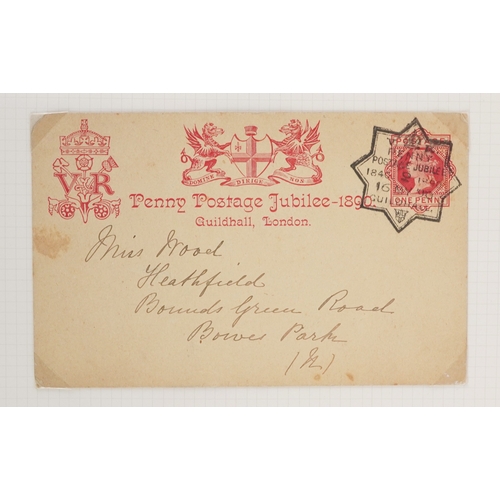 V R
DOMINE DIRIGE NOS
Penny Postage Jubilee-1890
Guildhall, London.
PENNY
POSTAGE JUBILEE
16
ONE PENNY
Miss Wood
Heathfield
Bounds Green Road
Bowes Park
(N.)